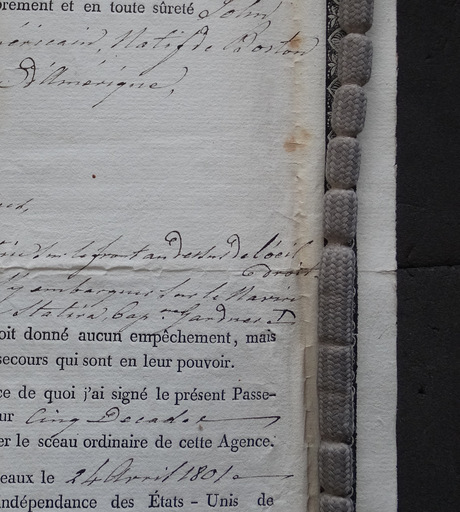 brement et en toute sûreté John
méricain, Natif de Boston
d'Amérique,
sur le front au dessus de l'oeil
droit
s'y embarquer sur le Navire
Statira Cap. Gardner
oit donné aucun empêchement, mais
secours qui sont en leur pouvoir.
ce de quoi j'ai signé le présent Passe-
ur Cinq Decades
er le sceau ordinaire de cette Agence.
eaux le 24 Avril 1801
ndépendance des États-Unis de